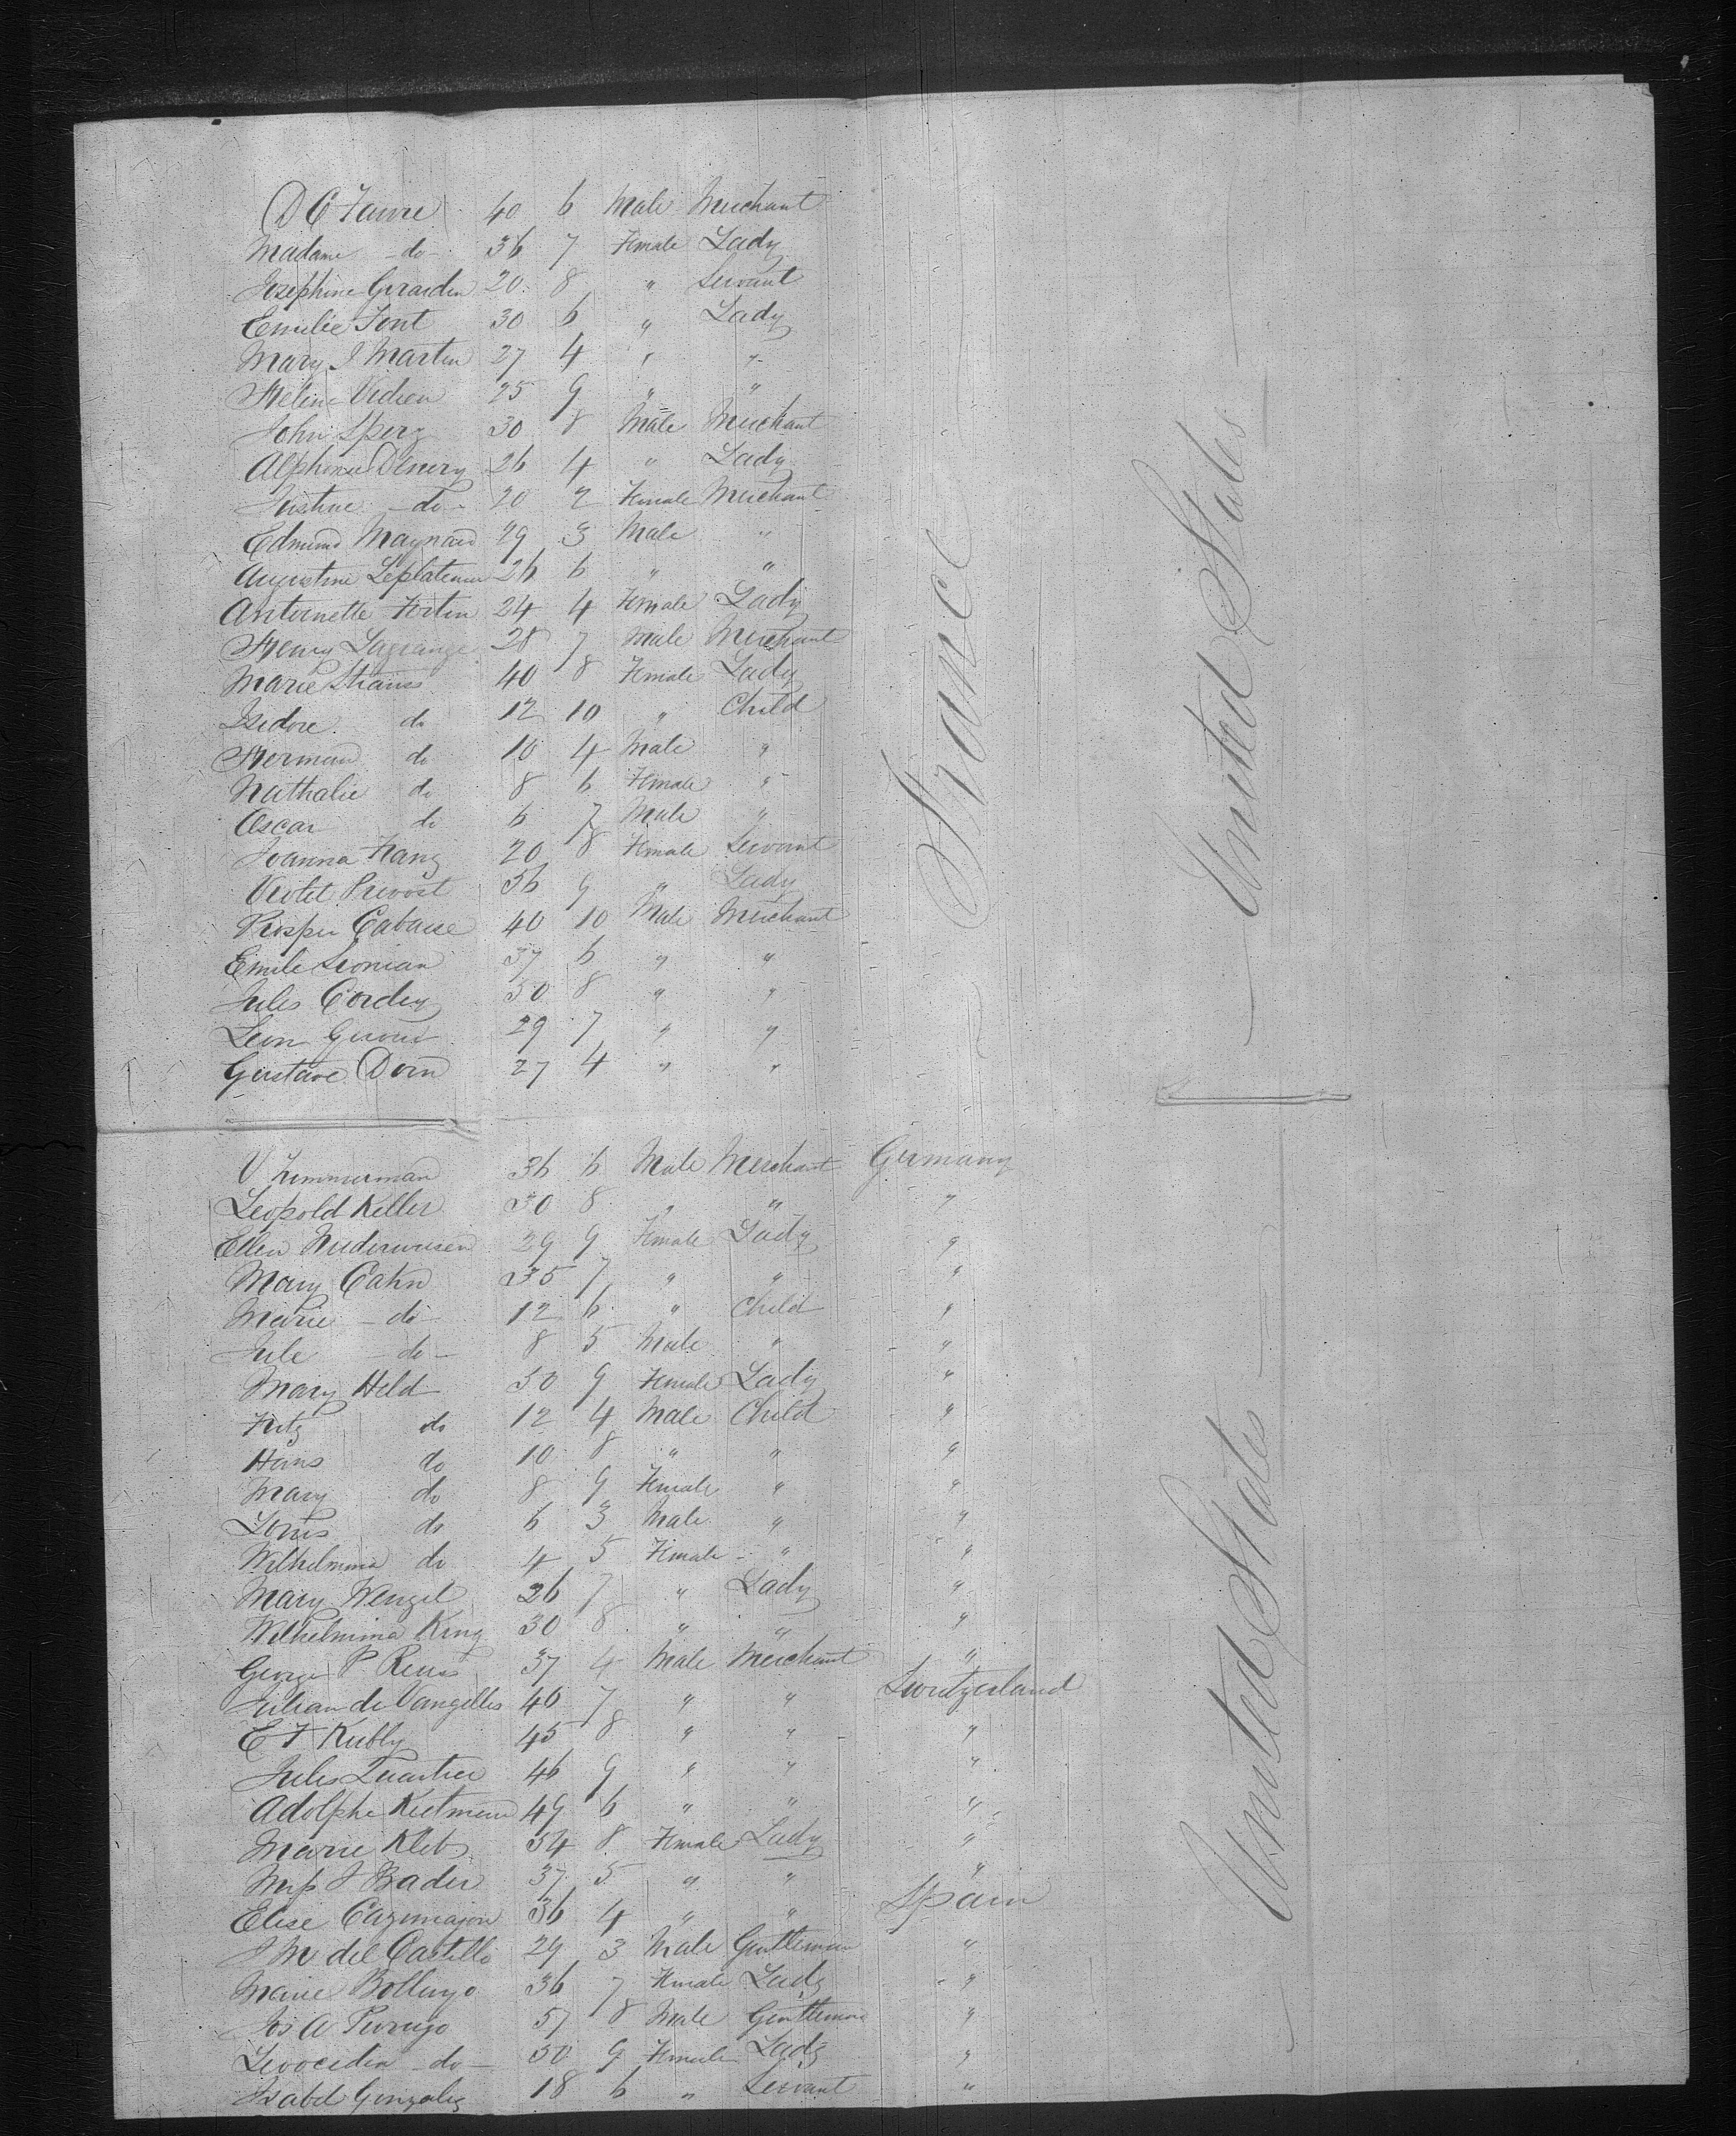 D C Faivre 40 6 Male Merchant
Madame - do - 36 7 Female Lady
Josephine Girardin 20 8 " Servant
Emilie Font 30 6 " Lady
Mary J Martin 27 4 " "
Helene Vidien 25 9 " "
John Sperg 30 8 Male Merchant
Alphonse Denery 26 4 " Lady
Justine - do - 20 2 Female Merchant
Edmund Maynard 29 3 Male "
Augustine 26 6 " "
Antoinette Fortin 24 4 Female Lady
Henry Lagrange 28 7 Male Merchant
Marie Strauss 40 8 Female Lady
Isidore do 12 10 " Child
Herman do 10 4 Male "
Nathalie do 8 6 Female "
Oscar do 6 7 Male "
Joanna Franz 20 8 Female Servant
Violet Prevost 36 9 " Lady
Prosper Cabaese 40 10 Male Merchant
Emile 37 6 " "
Jules Cordey 50 8 " "
Leon Giroud 29 7 " "
Gustave Dorn 27 4 " "
France
United States
V Zimmerman 36 6 Male Merchant Germany
Leopold Keller 30 8 " " "
Ellen Niederwiesen 29 9 Female Lady "
Mary Cahn 35 7 " " "
Marie - do - 12 6 " Child "
Jule - do - 8 5 Male " "
Mary Held 30 9 Female Lady "
Fritz do 12 4 Male Child "
Hans do 10 8 " " "
Mary do 8 9 Female " "
Louis do 6 3 Male " "
Wilhelmina do 4 5 Female " "
Mary Wenzel 26 7 " Lady "
Wilhelmina King 30 8 " " "
George P Reuss 37 4 Male Merchant "
Julian de Vangelles 46 7 " " Switzerland
E F Kubly 45 8 " " "
Jules Quartier 46 9 " " "
Adolphe 49 6 " " "
Marie Kleb 34 8 Female Lady "
Miss J Bader 37 5 " " "
Elise Cazimajou 36 4 " " Spain
J M del Castillo 29 3 Male Gentleman "
Marie Bollingo 36 7 Female Lady "
Jos A 57 8 Male Gentleman "
Leocadia - do - 30 9 Female Lady "
Isabel Gonzalez 18 6 " Servant "
United States